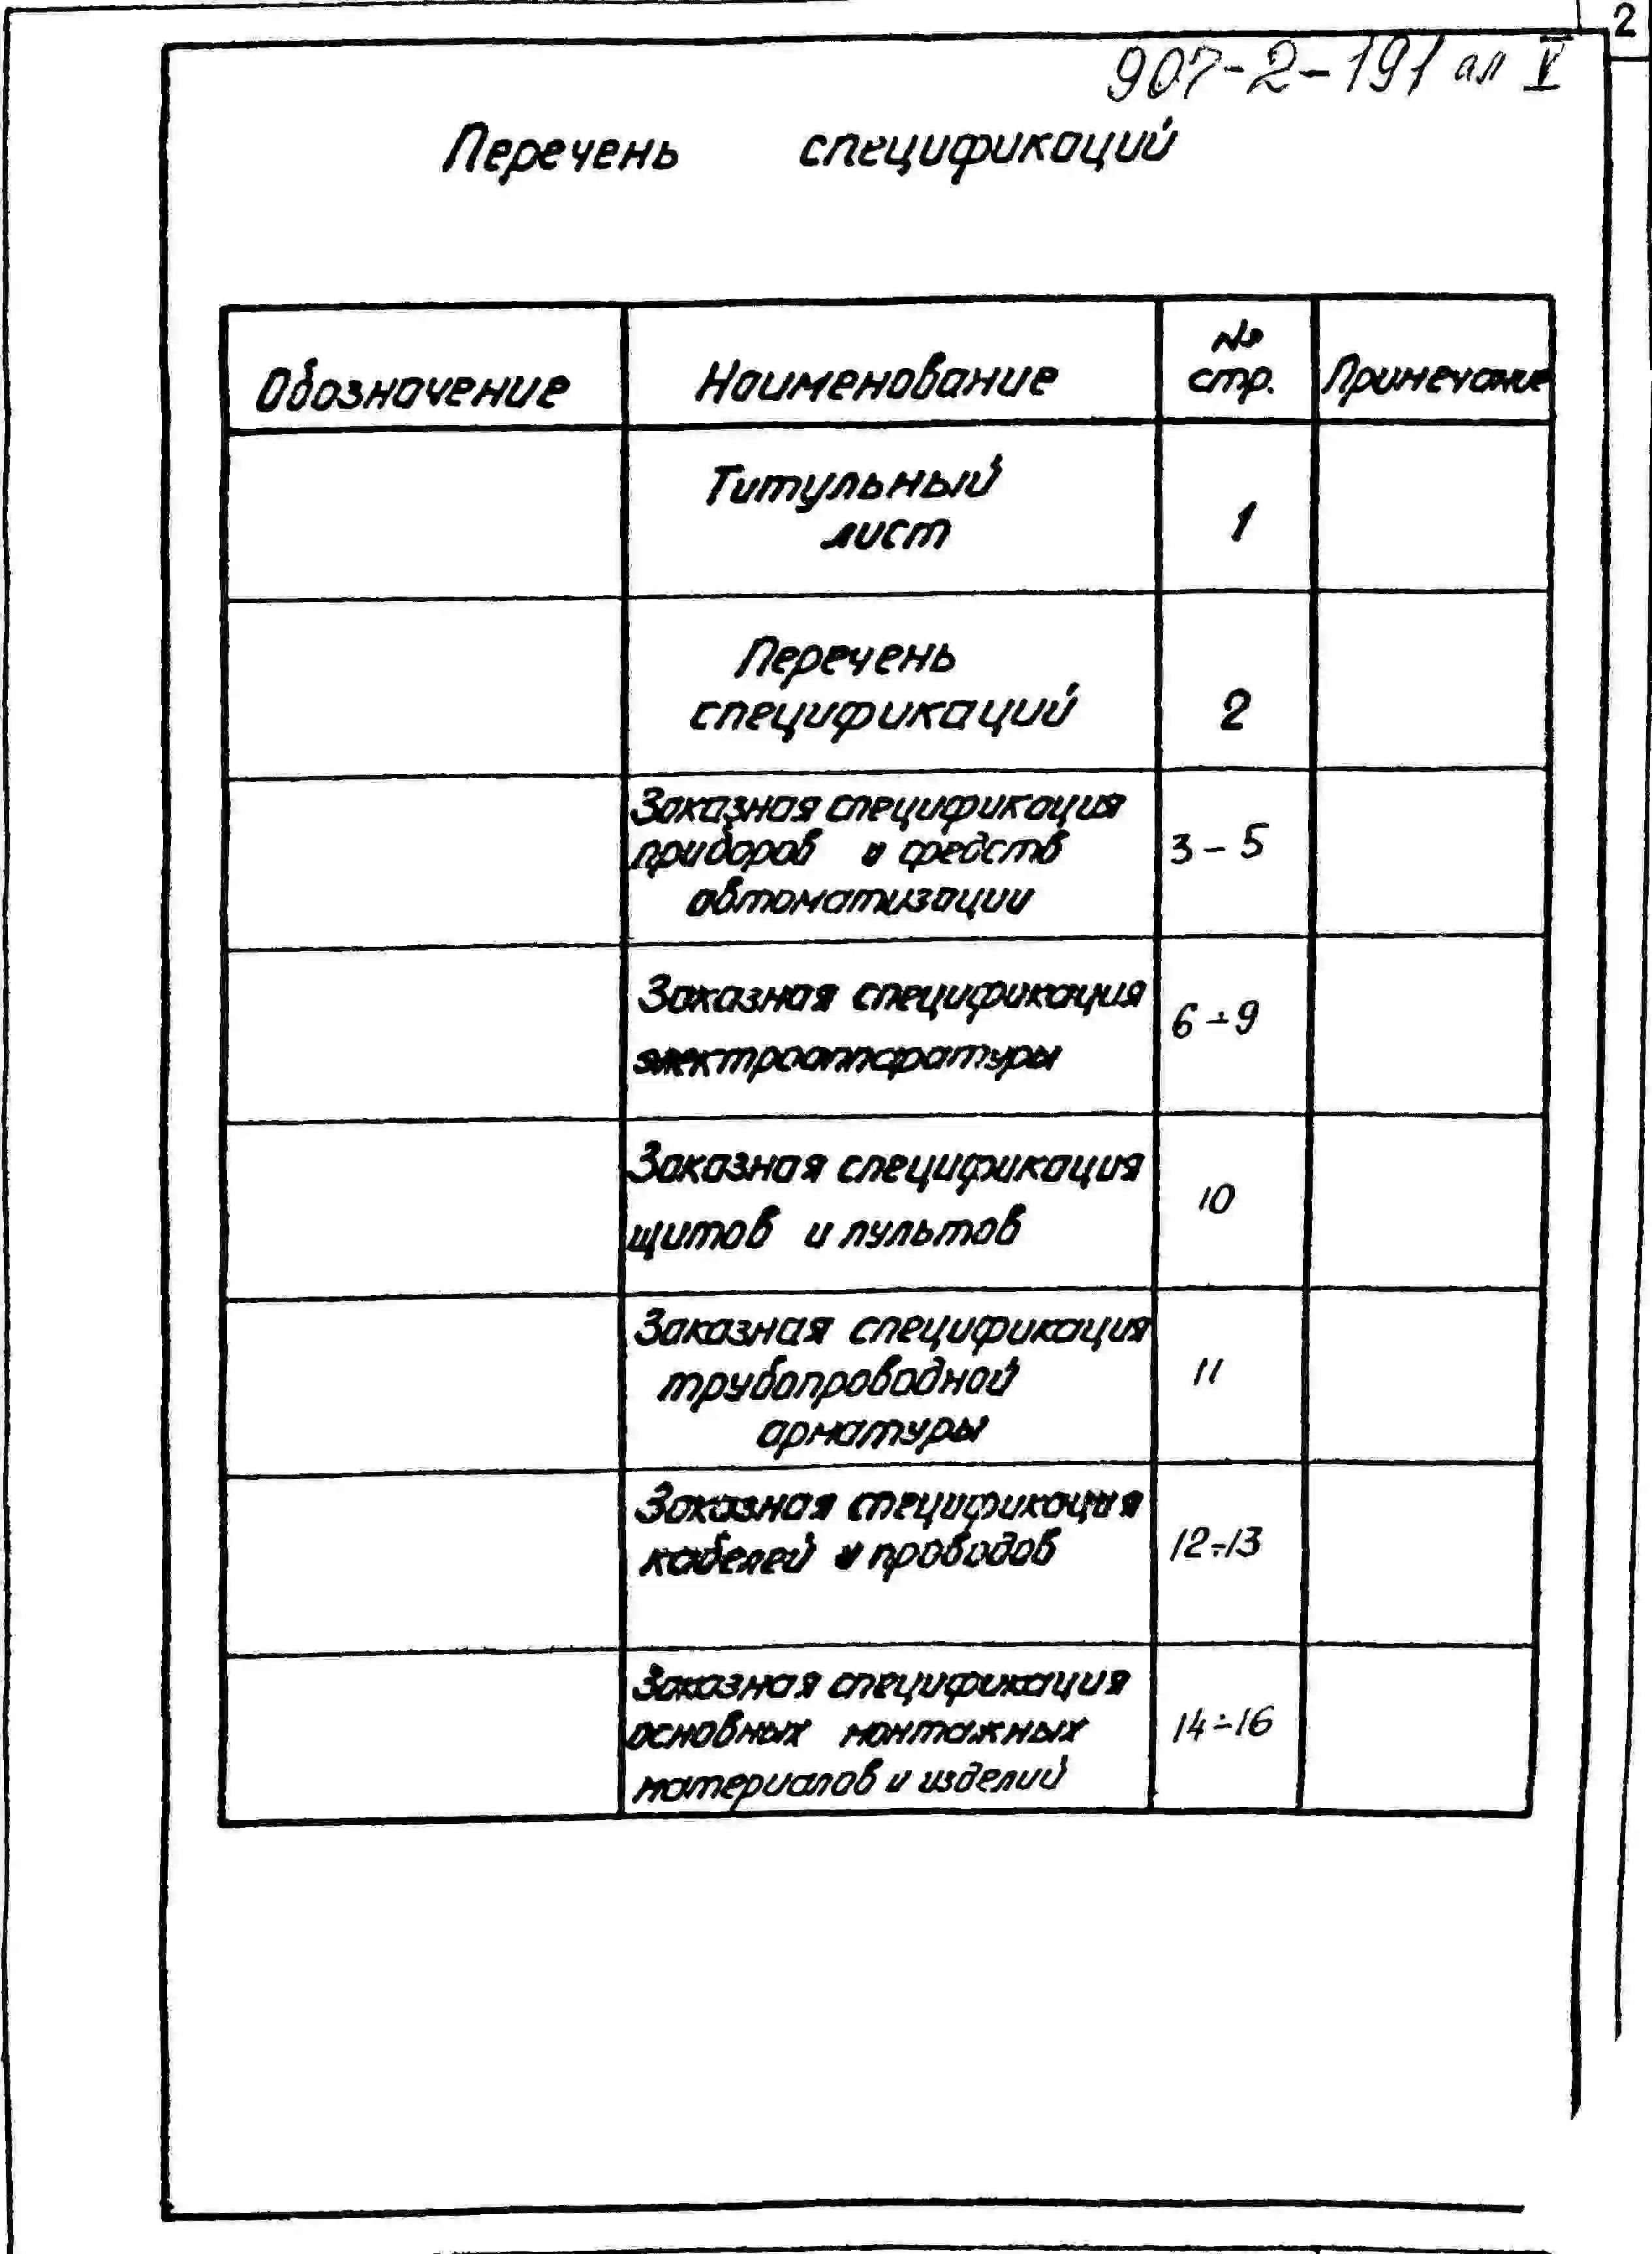 2
907-2-191 ал V
Перечень спецификаций
Обозначение
Наименование
№
стр.
Примечание
Титульный
лист
1
Перечень
спецификаций
2
Заказная спецификация
приборов и средств
автоматизации
3-5
Заказная спецификация
электроаппаратуры
6÷9
Заказная спецификация
щитов и пультов
10
Заказная спецификация
трубопроводной
арматуры
11
Заказная спецификация
кабелей и проводов
12÷13
Заказная спецификация
основных монтажных
материалов и изделий
14÷16